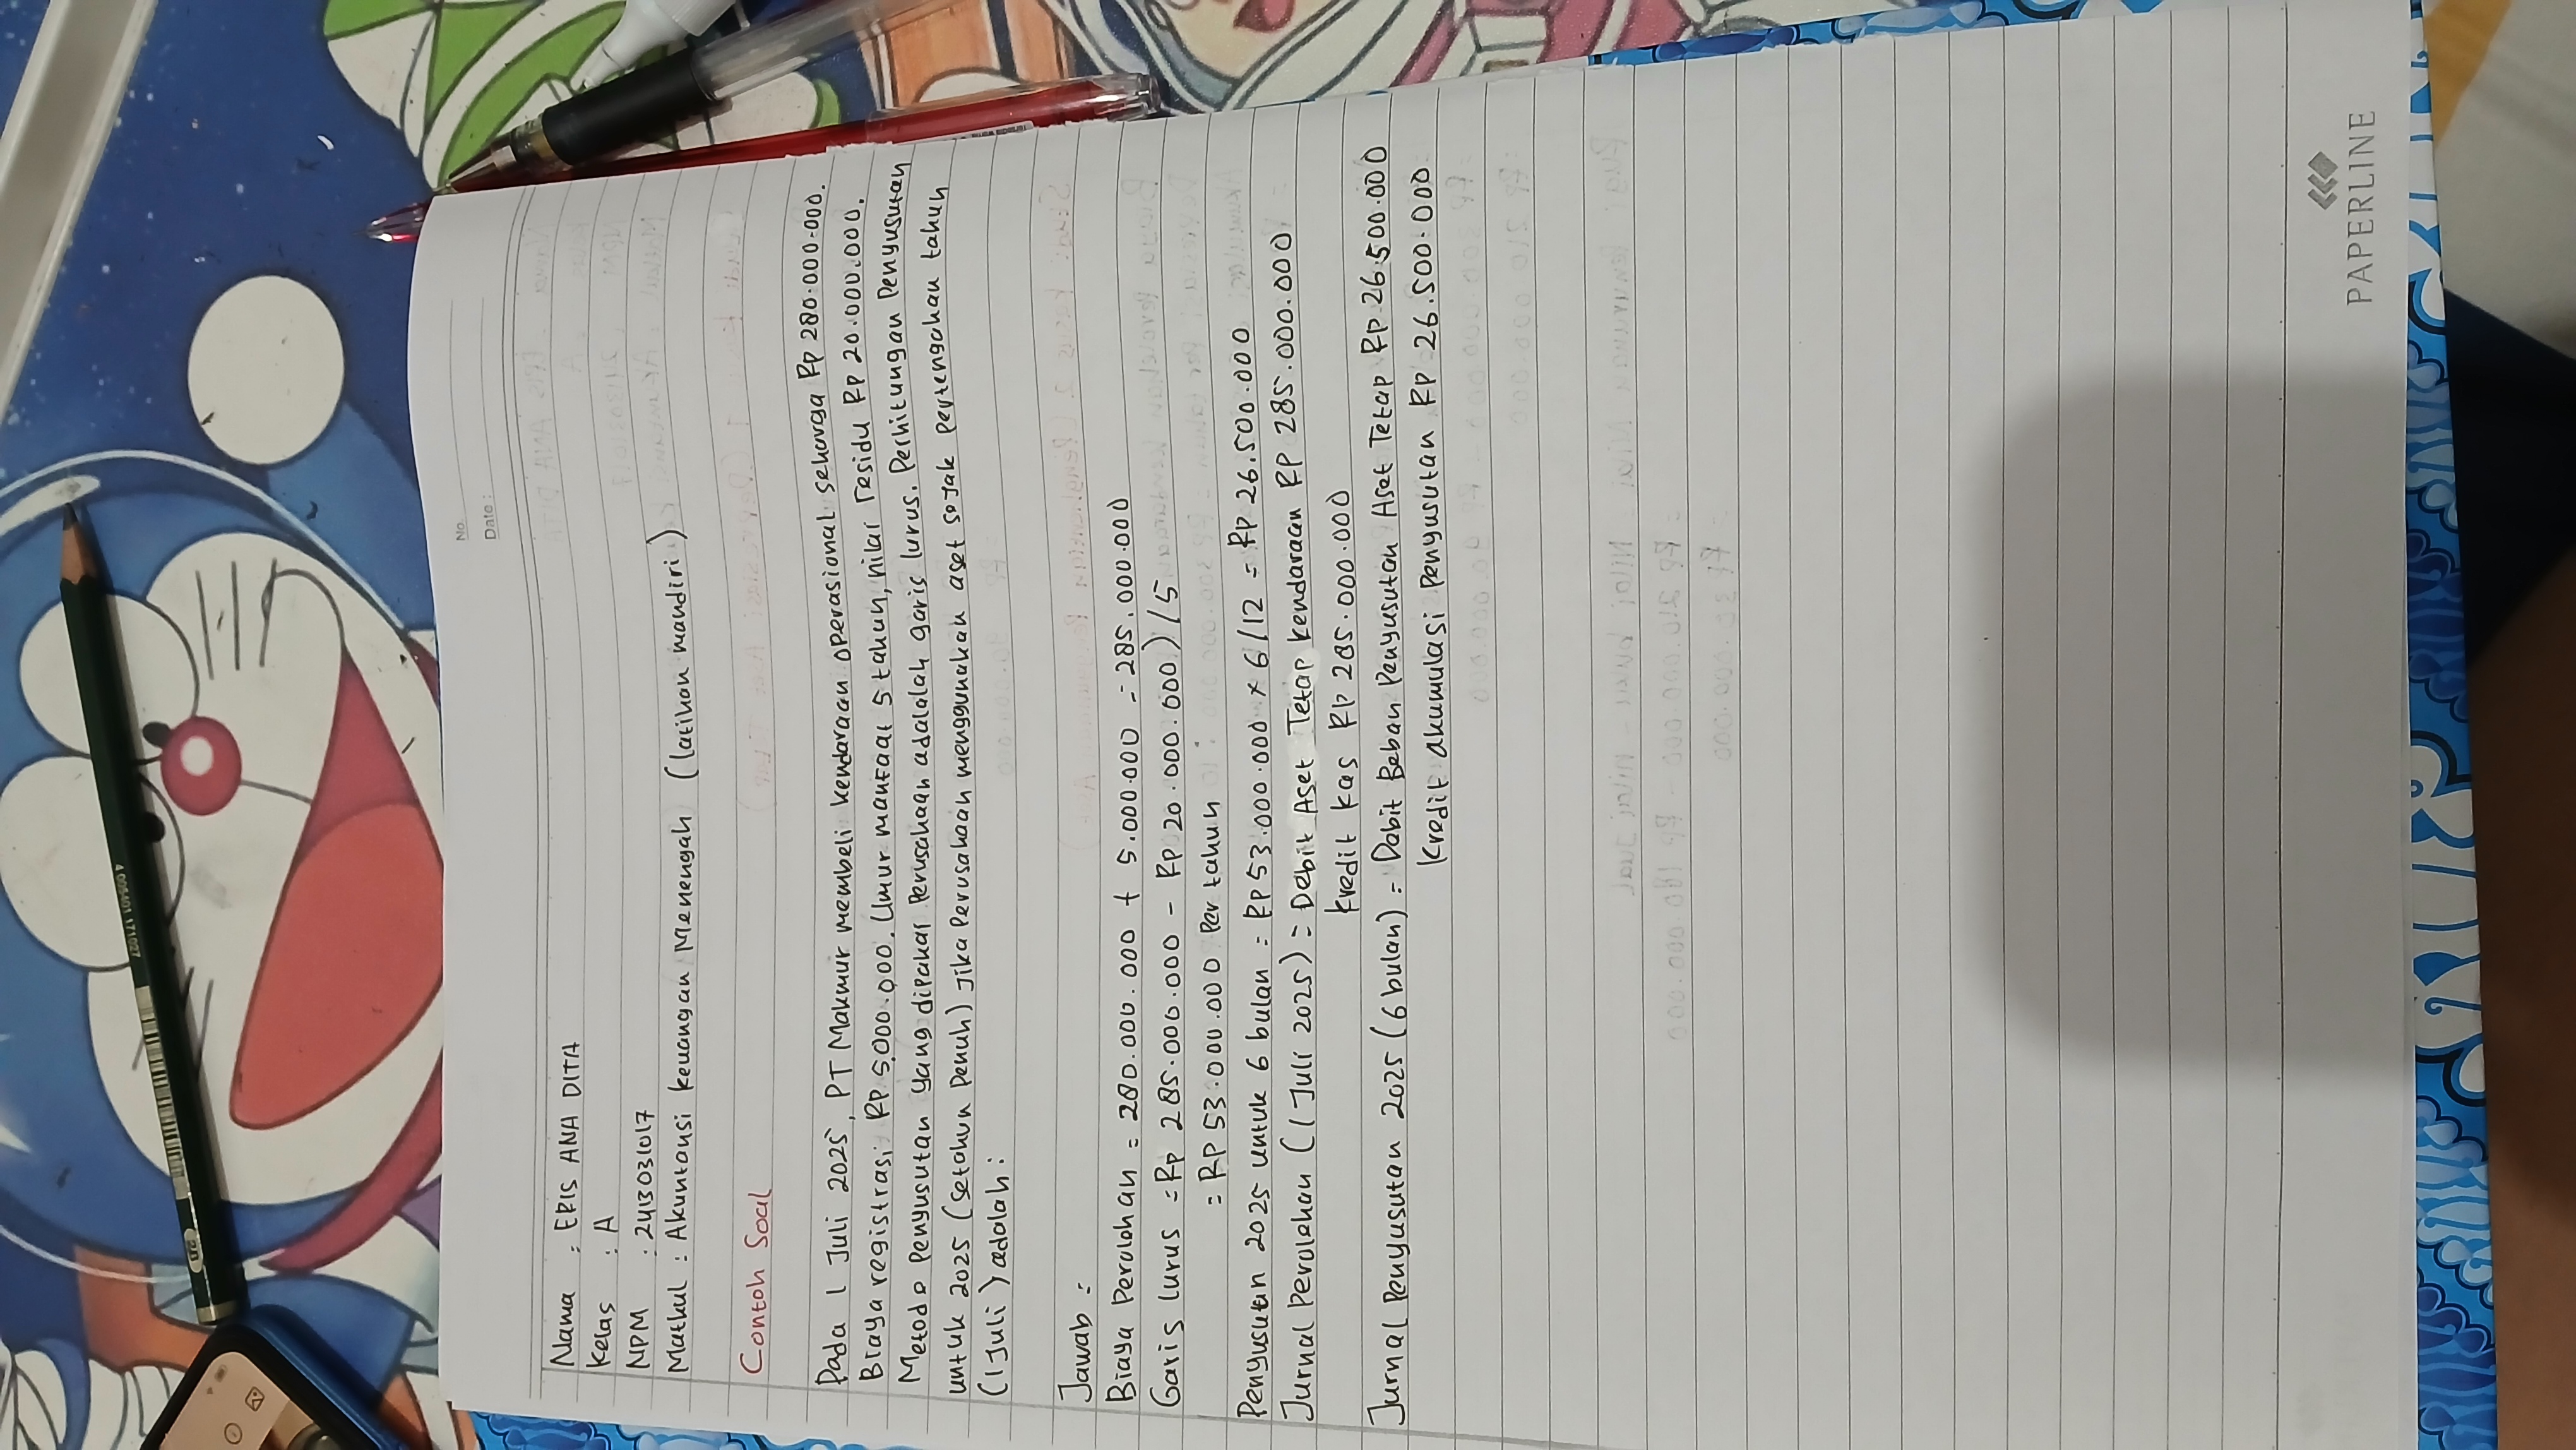 No.
Date :
Nama : ERIS ANA DITA
Kelas : A
NPM : 2413031017
Matkul : Akuntansi keuangan Menengah (latihan mandiri)
Contoh Soal
Pada 1 Juli 2025, PT Makmur membeli kendaraan operasional seharga Rp 280.000.000.
Biaya registrasi Rp 5.000.000. Umur manfaat 5 tahun, nilai residu Rp 20.000.000.
Metode Penyusutan yang dipakai Perusahaan adalalah garis lurus. Perhitungan Penyusutan
untuk 2025 (setahun Penuh) Jika Perusahaan menggunakan aset sejak Pertengahan tahun
(1 Juli) adalah :
Jawab =
Biaya Perolehan = 280.000.000 + 5.000.000 = 285.000.000
Garis lurus = Rp 285.000.000 - Rp 20.000.000) /5
= RP 53.000.000 Per tahun
Penyusutan 2025 untuk 6 bulan = RP 53.000.000 x 6/12 = Rp 26.500.000
Jurnal Perolehan (1 Juli 2025) = Debit Aset Tetap kendaraan RP 285.000.000
kredit kas Rp 285.000.000
Jurnal Penyusutan 2025 (6 bulan) = Debit Beban Penyusutan Aset Tetap Rp.26.500.000
Kredit akumulasi Penyusutan Rp 26.500.000
PAPERLINE